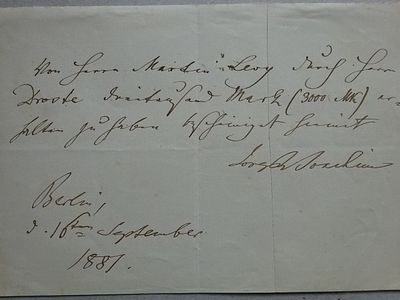 Von Herrn Martin Levy durch Herrn
Droote dreitausend Mark (3000 Mk) er-
halten zu haben bescheinigt hiermit
Joseph Joachim
Berlin,
d. 16ten September
1881.